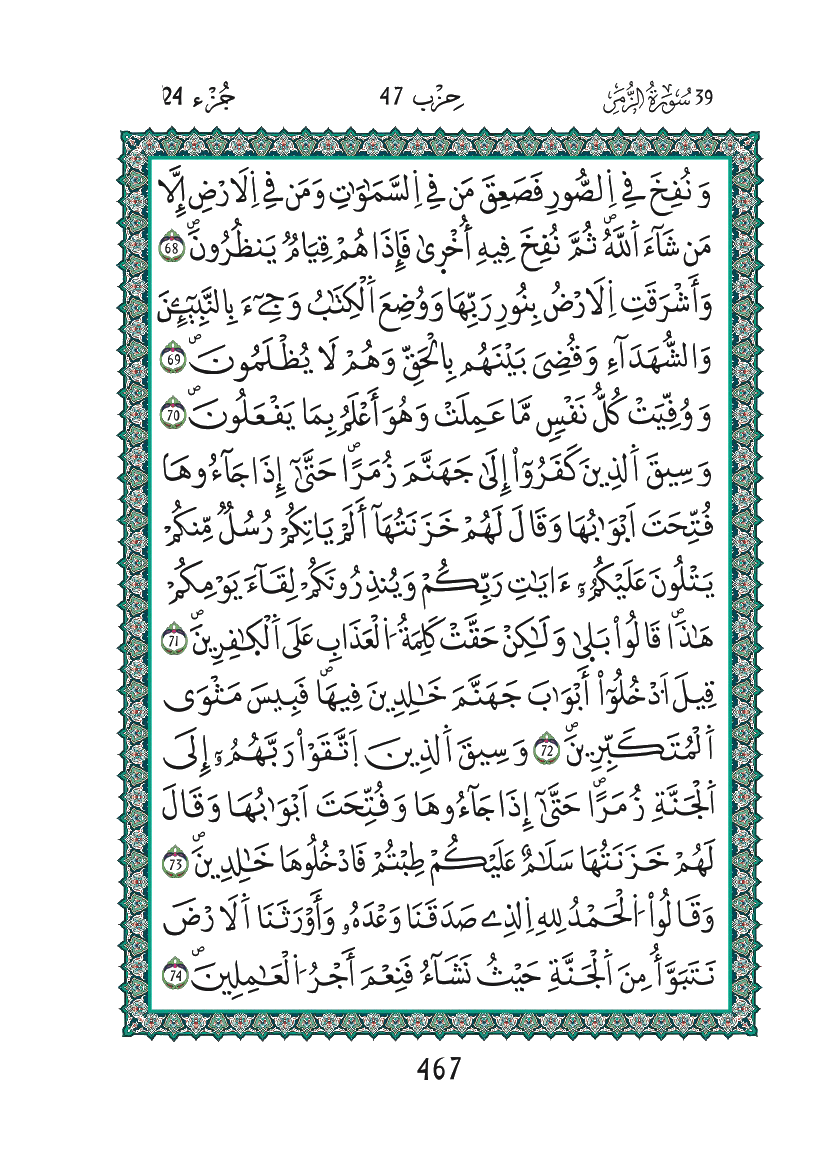 39 سُورَةُ الزُّمَرِ حِزْب 47 جُزْء 24
وَنُفِخَ فِي اِ۬لصُّورِ فَصَعِقَ مَن فِي اِ۬لسَّمَٰوَٰتِ وَمَن فِي اِ۬لَارْضِ إِلَّا
مَن شَآءَ اَ۬للَّهُۖ ثُمَّ نُفِخَ فِيهِ أُخْر۪يٰ فَإِذَا هُمْ قِيَامٞ يَنظُرُونَۖ 68
وَأَشْرَقَتِ اِ۬لَارْضُ بِنُورِ رَبِّهَا وَوُضِعَ اَ۬لْكِتَٰبُ وَجِےٓءَ بِالنَّبِيٓـِٕينَ
وَالشُّهَدَآءِ وَقُضِيَ بَيْنَهُم بِالْحَقِّ وَهُمْ لَا يُظْلَمُونَۖ 69
وَوُفِّيَتْ كُلُّ نَفْسٖ مَّا عَمِلَتْ وَهُوَ أَعْلَمُ بِمَا يَفْعَلُونَۖ 70
وَسِيقَ اَ۬لذِينَ كَفَرُوٓاْ إِلَىٰ جَهَنَّمَ زُمَراًۖ حَتَّىٰٓ إِذَا جَآءُوهَا
فُتِّحَتَ اَبْوَٰبُهَا وَقَالَ لَهُمْ خَزَنَتُهَآ أَلَمْ يَاتِكُمْ رُسُلٞ مِّنكُمْ
يَتْلُونَ عَلَيْكُمُۥٓ ءَايَٰتِ رَبِّكُمْ وَيُنذِرُونَكُمْ لِقَآءَ يَوْمِكُمْ
هَٰذَاۖ قَالُواْ بَل۪يٰ وَلَٰكِنْ حَقَّتْ كَلِمَةُ اُ۬لْعَذَابِ عَلَى اَ۬لْكٰ۪فِرِينَۖ 71
قِيلَ اَ۟دْخُلُوٓاْ أَبْوَٰبَ جَهَنَّمَ خَٰلِدِينَ فِيهَاۖ فَبِيسَ مَثْوَى
اَ۬لْمُتَكَبِّرِينَۖ 72 وَسِيقَ اَ۬لذِينَ اَ۪تَّقَوْاْ رَبَّهُمُۥٓ إِلَى
اَ۬لْجَنَّةِ زُمَراًۖ حَتَّىٰٓ إِذَا جَآءُوهَا وَفُتِّحَتَ اَبْوَٰبُهَا وَقَالَ
لَهُمْ خَزَنَتُهَا سَلَٰمٌ عَلَيْكُمْ طِبْتُمْ فَادْخُلُوهَا خَٰلِدِينَۖ 73
وَقَالُواْ اُ۬لْحَمْدُ لِلهِ اِ۬لذِے صَدَقَنَا وَعْدَهُۥ وَأَوْرَثَنَا اَ۬لَارْضَ
نَتَبَوَّأُ مِنَ اَ۬لْجَنَّةِ حَيْثُ نَشَآءُ فَنِعْمَ أَجْرُ اُ۬لْعَٰمِلِينَۖ 74
467